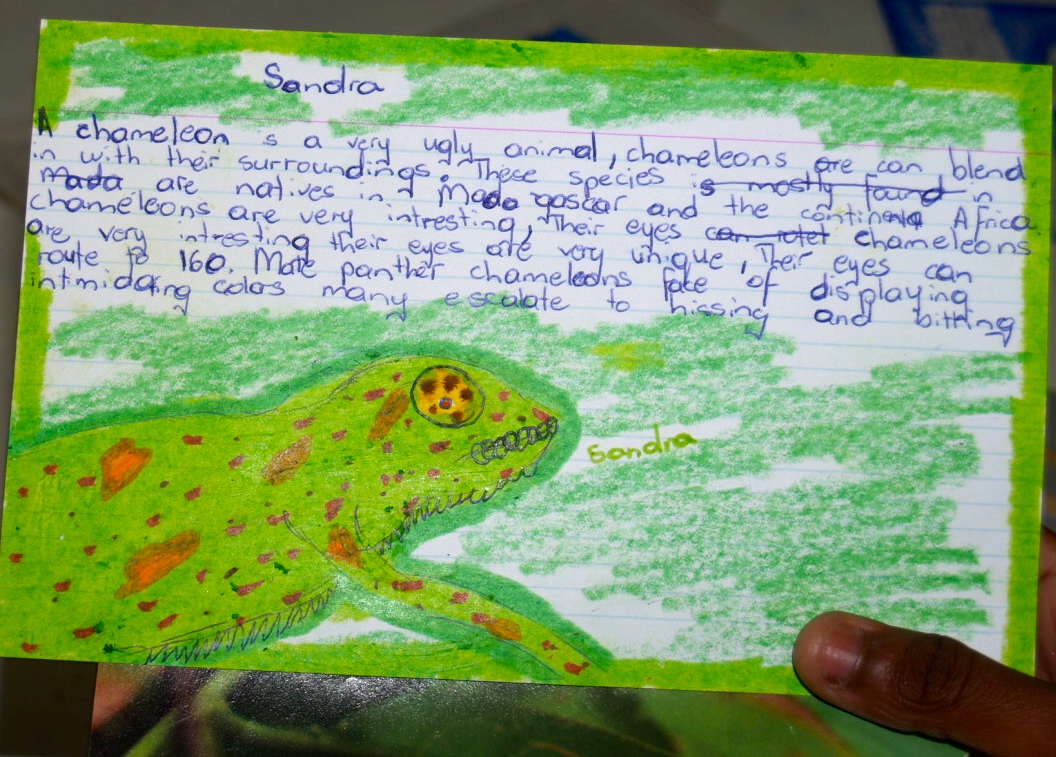 Sandra
A chameleon is a very ugly animal, chameleons are can blend
in with their surroundings. These species is mostly found in
Mada are natives in Madagascar and the continent Africa.
chameleons are very intresting, Their eyes can rotet chameleons
are very intresting their eyes are very unique, Their eyes can
route to 160. Male panther chameleons fake of displaying
intimidating colors many escalate to hissing and bitting
Sandra